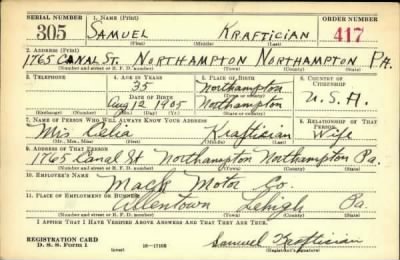 SERIAL NUMBER 1. NAME (Print) ORDER NUMBER
305 SAMUEL KRAFTICIAN 417
(First) (Middle) (Last)
2. ADDRESS (Print)
1765 CANAL ST. NORTHAMPTON NORTHAMPTON PA.
(Number and street or R. F. D. number) (Town) (County) (State)
3. TELEPHONE 4. AGE IN YEARS 5. PLACE OF BIRTH 6. COUNTRY OF CITIZENSHIP
35 Northampton
DATE OF BIRTH (Town or county)
Aug 12 1905 Northampton U.S.A.
(Exchange) (Number) (Mo.) (Day) (Yr.) (State or country)
7. NAME OF PERSON WHO WILL ALWAYS KNOW YOUR ADDRESS 8. RELATIONSHIP OF THAT PERSON
Mrs Delia Kraftician Wife
(Mr., Mrs., Miss) (First) (Middle) (Last)
9. ADDRESS OF THAT PERSON
1765 Canal St Northampton Northampton Pa.
(Number and street or R. F. D. number) (Town) (County) (State)
10. EMPLOYER'S NAME
Mack Motor Co.
11. PLACE OF EMPLOYMENT OR BUSINESS
Allentown Lehigh Pa.
(Number and street or R. F. D. number) (Town) (County) (State)
I AFFIRM THAT I HAVE VERIFIED ABOVE ANSWERS AND THAT THEY ARE TRUE.
REGISTRATION CARD
D. S. S. Form 1 (over) 16—17105 Samuel Kraftician